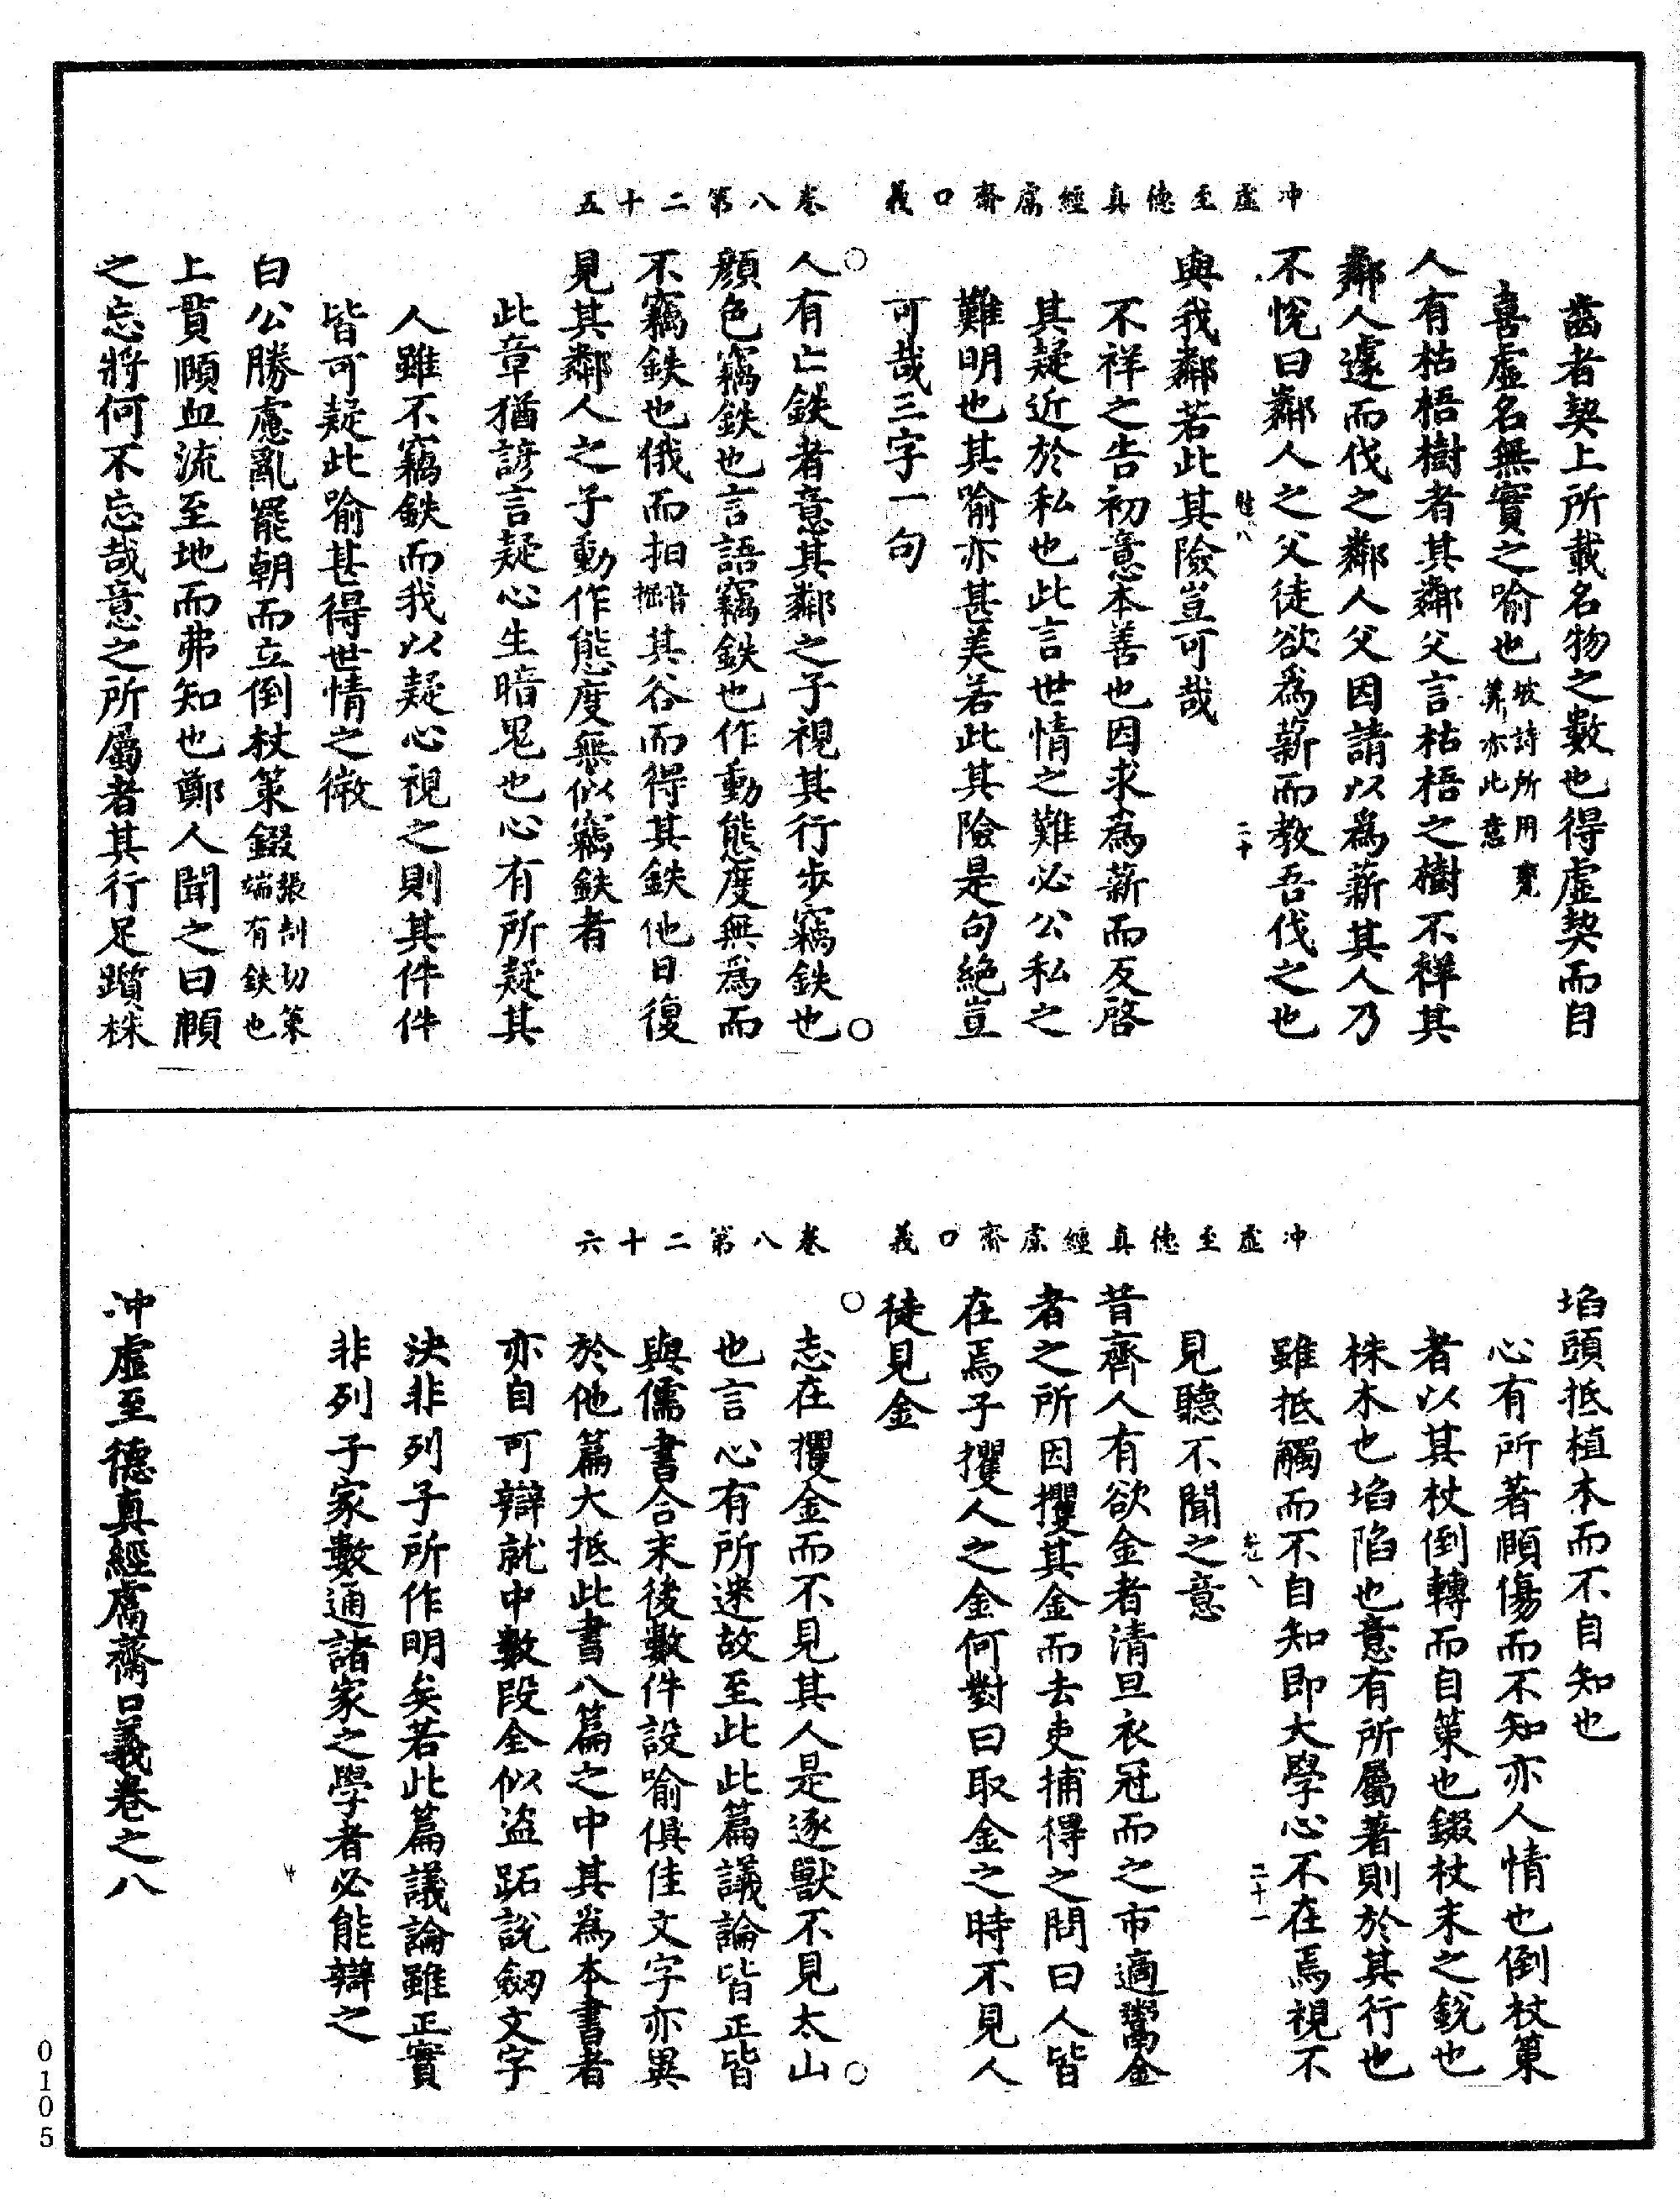 冲虛至德真經鬳齋口義　卷八第二十五
齒者契上所載名物之數也得虛契而自
喜虛名無實之喻也坡詩所用甕
筭亦此意
人有枯梧樹者其鄰父言枯梧之樹不祥其
鄰人遽而伐之鄰人父因請以為薪其人乃
不悅曰鄰人之父徒欲為薪而教吾伐之也
二十
與我鄰若此其險豈可哉
不祥之告初意本善也因求為薪而反啓
其疑近於私也此言世情之難必公私之
難明也其喻亦甚美若此其險是句絕豈
可哉三字一句
人有亡鈇者意其鄰之子視其行步竊鈇也
顏色竊鈇也言語竊鈇也作動態度無為而
不竊鈇也俄而抇音掘其谷而得其鈇他日復
見其鄰人之子動作態度無似竊鈇者
此章猶諺言疑心生暗鬼也心有所疑其
人雖不竊鈇而我以疑心視之則其件件
皆可疑此喻甚得世情之微
白公勝慮亂罷朝而立倒杖策錣張劣切策
端有鈇也
上貫頤血流至地而弗知也鄭人聞之曰頤
之忘將何不忘哉意之所屬者其行足躓株
冲虛至德真經鬳齋口義　卷八第二十六
埳頭抵植木而不自知也
心有所著頤傷而不知亦人情也倒杖策
者以其杖倒轉而自策也錣杖末之銳也
株木也埳陷也意有所屬著則於其行也
雖抵觸而不自知即大學心不在焉視不
二十一
見聽不聞之意
昔齊人有欲金者清旦衣冠而之市適鬻金
者之所因攫其金而去吏捕得之問曰人皆
在焉子攫人之金何對曰取金之時不見人
徒見金
志在攫金而不見其人是逐獸不見太山
也言心有所迷故至此此篇議論皆正皆
與儒書合末後數件設喻俱佳文字亦異
於他篇大抵此書八篇之中其為本書者
亦自可辯就中數段全似盜跖說劒文字
決非列子所作明矣若此篇議論雖正實
非列子家數通諸家之學者必能辯之
冲虛至德真經鬳齋口義卷之八
0105